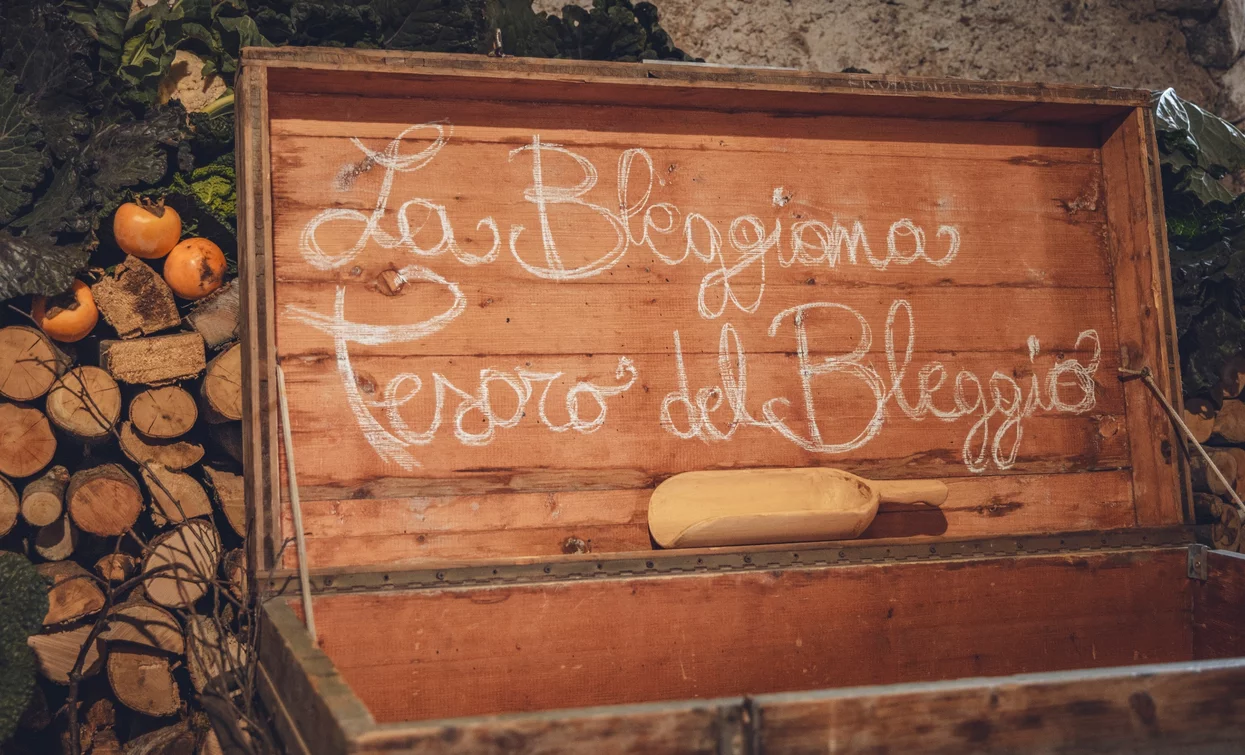 La Bleggiana
Tesoro del Bleggio